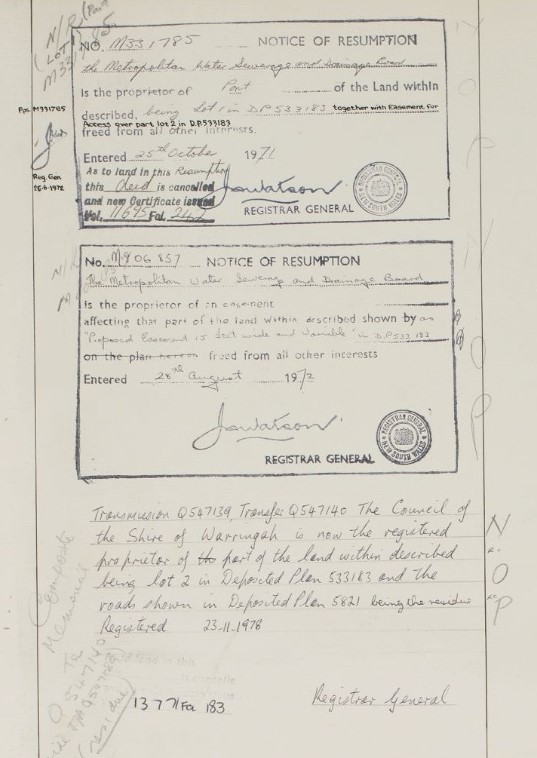 N/R (Part
(LOT 1
M331785
NO. M331785 NOTICE OF RESUMPTION
the Metropolitan Water Sewerage and Drainage Board
is the proprietor of Part of the Land within
described, being Lot 1 in D.P.533183 together with Easement for
Access over part lot 2 in D.P.533183
freed from all other interests.
Entered 25th October 1971
As to land in this Resumption
this Deed is cancelled
and new Certificate issued
Vol. 11695 Fol. 242
JaWatson
REGISTRAR GENERAL
M331785
Reg. Gen
No. M906857 NOTICE OF RESUMPTION
The Metropolitan Water Sewerage and Drainage Board
is the proprietor of an easement
affecting that part of the land within described shown by as
"Proposed Easement 15 feet wide and Variable" in D.P.533183
on the plan hereon freed from all other interests
Entered 28th August 1972
JaWatson
REGISTRAR GENERAL
REGISTRAR GENERAL
NEW SOUTH WALES
Transmission Q547139, Transfer Q547140 The Council of
the Shire of Warringah is now the registered
proprietor of th part of the land within described
being lot 2 in Deposited Plan 533183 and the
roads shown in Deposited Plan 5821 being the residue
Registered 23-11-1978
N
O
P
1377 Fol 183
Registrar General
Q547140
(residue)